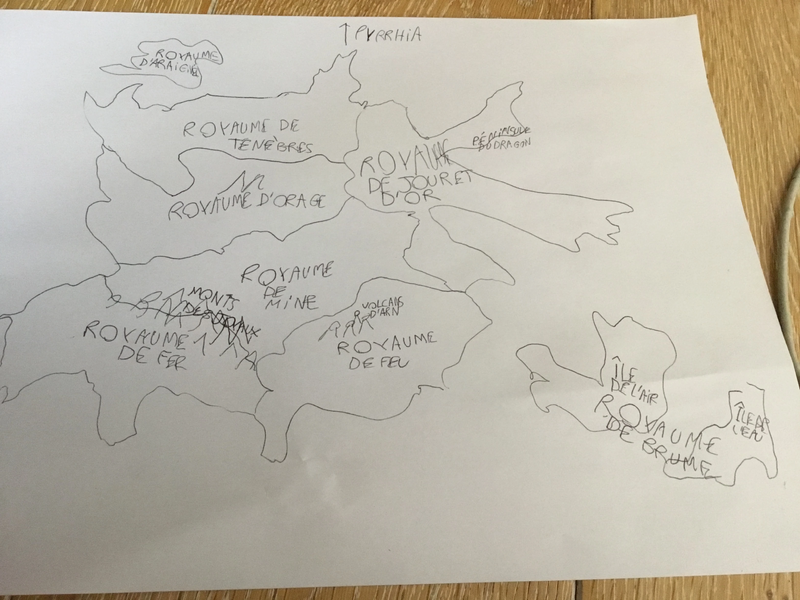 ↑ PYRRHIA
ROYAUME
ROYAUME DE
TENÈBRES
PÉNINSULE
DU DRAGON
ROYAUME
DE JOUR ET
D'OR
ROYAUME D'ORAGE
ROYAUME
DE
MINE
MONTS
VOLCANS
D'ARN
ROYAUME
DE FER
ROYAUME
DE FEU
ÎLE
DE L'AIR
ÎLE DE
L'EAU
ROYAUME
DE BRUME